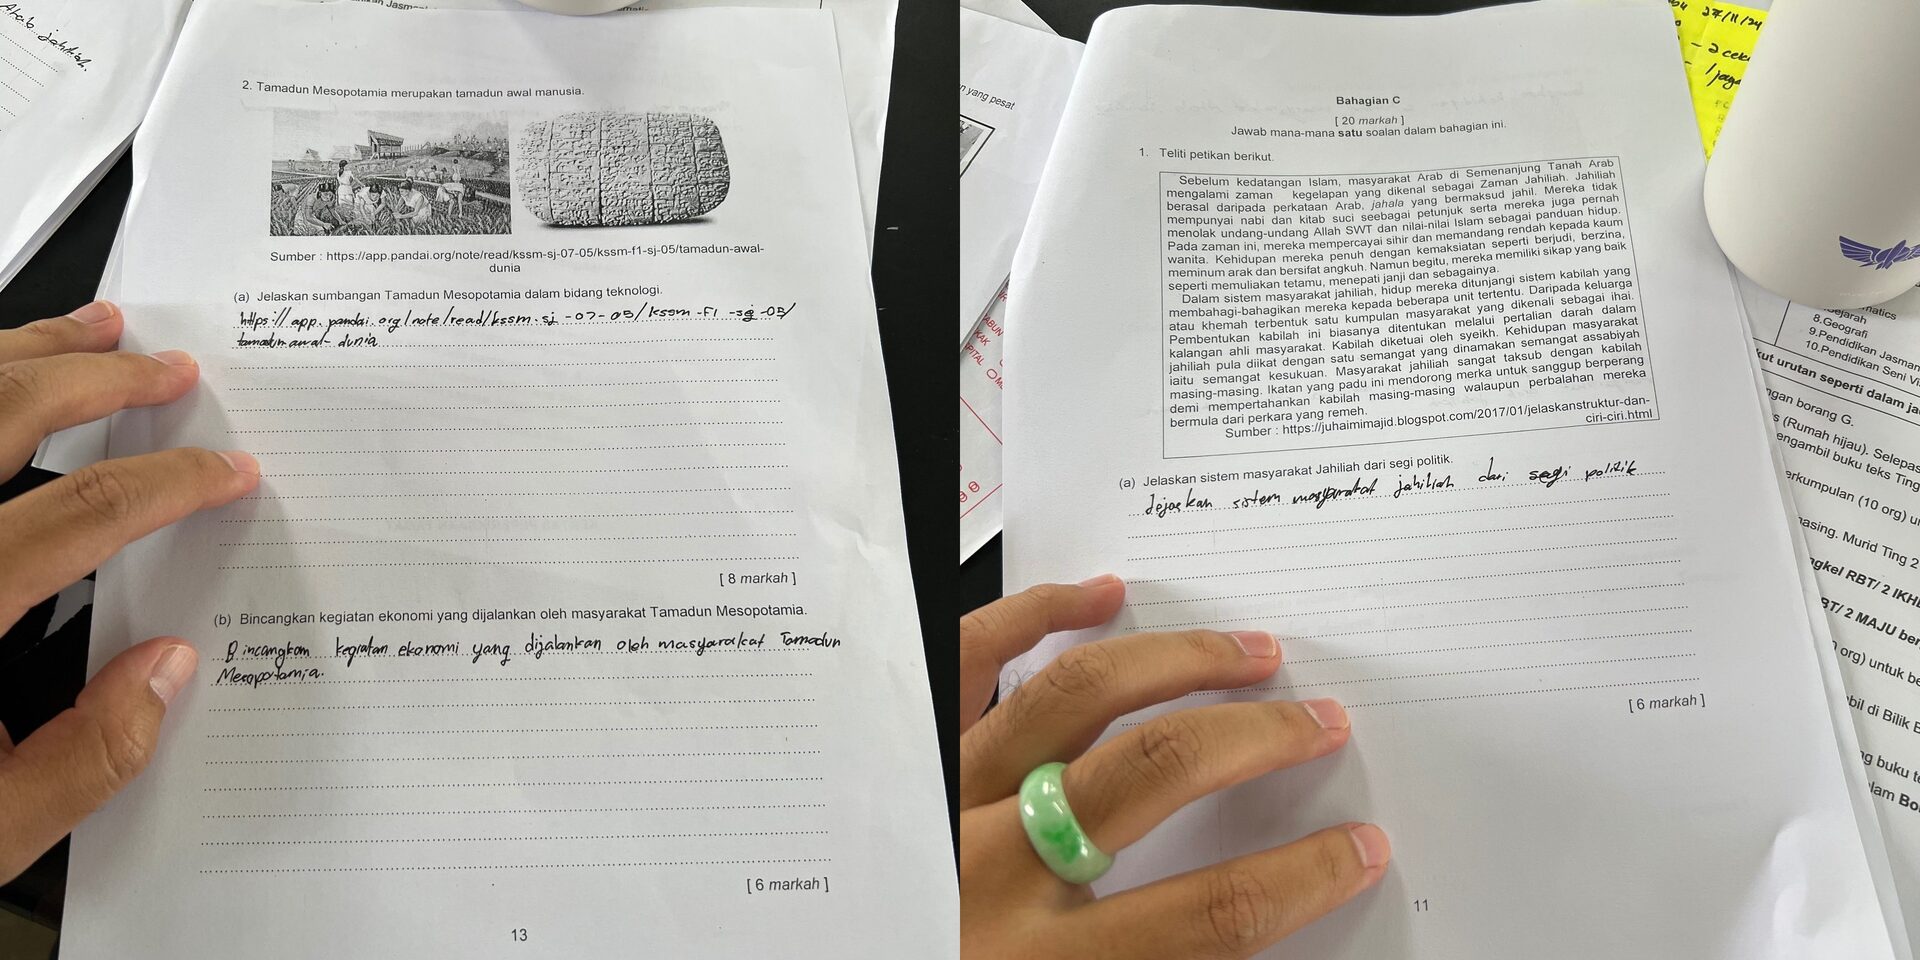 Arab
Jahiliah.
2. Tamadun Mesopotamia merupakan tamadun awal manusia.
Sumber : https://app.pandai.org/note/read/kssm-sj-07-05/kssm-f1-sj-05/tamadun-awal-
dunia
(a) Jelaskan sumbangan Tamadun Mesopotamia dalam bidang teknologi.
https://app.pandai.org/note/read/kssm-sj-07-05/kssm-F1-sg-05/
tamadun awal-dunia
[ 8 markah ]
(b) Bincangkan kegiatan ekonomi yang dijalankan oleh masyarakat Tamadun Mesopotamia.
Bincangkan kegiatan ekonomi yang dijalankan oleh masyarakat Tamadun
Mesopotamia.
[ 6 markah ]
13
n yang pesat
Bahagian C
[ 20 markah ]
Jawab mana-mana satu soalan dalam bahagian ini.
1. Teliti petikan berikut.
Sebelum kedatangan Islam, masyarakat Arab di Semenanjung Tanah Arab
mengalami zaman kegelapan yang dikenal sebagai Zaman Jahiliah. Jahiliah
berasal daripada perkataan Arab, jahala yang bermaksud jahil. Mereka tidak
mempunyai nabi dan kitab suci seebagai petunjuk serta mereka juga pernah
menolak undang-undang Allah SWT dan nilai-nilai Islam sebagai panduan hidup.
Pada zaman ini, mereka mempercayai sihir dan memandang rendah kepada kaum
wanita. Kehidupan mereka penuh dengan kemaksiatan seperti berjudi, berzina,
meminum arak dan bersifat angkuh. Namun begitu, mereka memiliki sikap yang baik
seperti memuliakan tetamu, menepati janji dan sebagainya.
Dalam sistem masyarakat jahiliah, hidup mereka ditunjangi sistem kabilah yang
membahagi-bahagikan mereka kepada beberapa unit tertentu. Daripada keluarga
atau khemah terbentuk satu kumpulan masyarakat yang dikenali sebagai ihai.
Pembentukan kabilah ini biasanya ditentukan melalui pertalian darah dalam
kalangan ahli masyarakat. Kabilah diketuai oleh syeikh. Kehidupan masyarakat
jahiliah pula diikat dengan satu semangat yang dinamakan semangat assabiyah
iaitu semangat kesukuan. Masyarakat jahiliah sangat taksub dengan kabilah
masing-masing. Ikatan yang padu ini mendorong merka untuk sanggup berperang
demi mempertahankan kabilah masing-masing walaupun perbalahan mereka
bermula dari perkara yang remeh.
Sumber : https://juhaimimajid.blogspot.com/2017/01/jelaskanstruktur-dan-
ciri-ciri.html
(a) Jelaskan sistem masyarakat Jahiliah dari segi politik.
Jejaskan sistem masyarakat jahiliah dari segi politik
[ 6 markah ]
11
27/11/24
Sejarah
8.Geografi
9.Pendidikan Jasman
10.Pendidikan Seni Vi
kut urutan seperti dalam ja
ngan borang G.
s (Rumah hijau). Selepas
engambil buku teks Ting
erkumpulan (10 org) u
asing. Murid Ting 2
ngkel RBT/ 2 IKH
BT/ 2 MAJU ber
org) untuk be
bil di Bilik B
g buku te
lam Bo